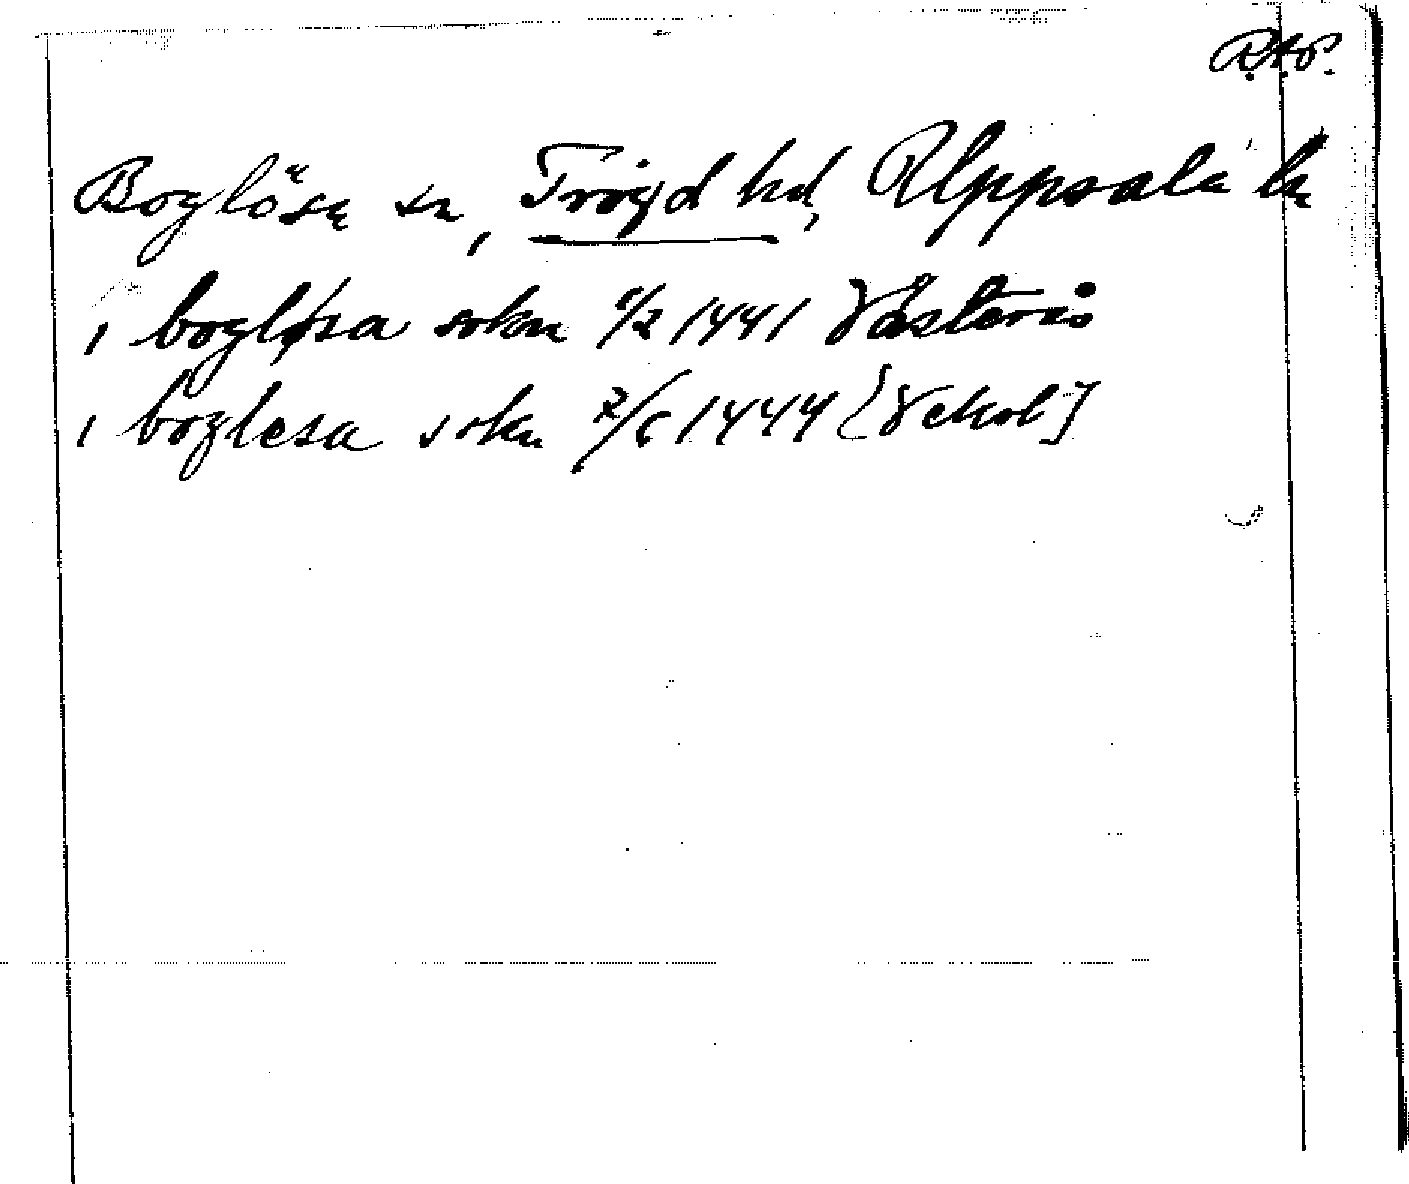 R.A.P.
Boglösa sn, Trögd hd, Uppsala län
i bogløsa sokn 1/2 1441 Västerås
i boglesa sokn 7/6 1444 [Vekol]